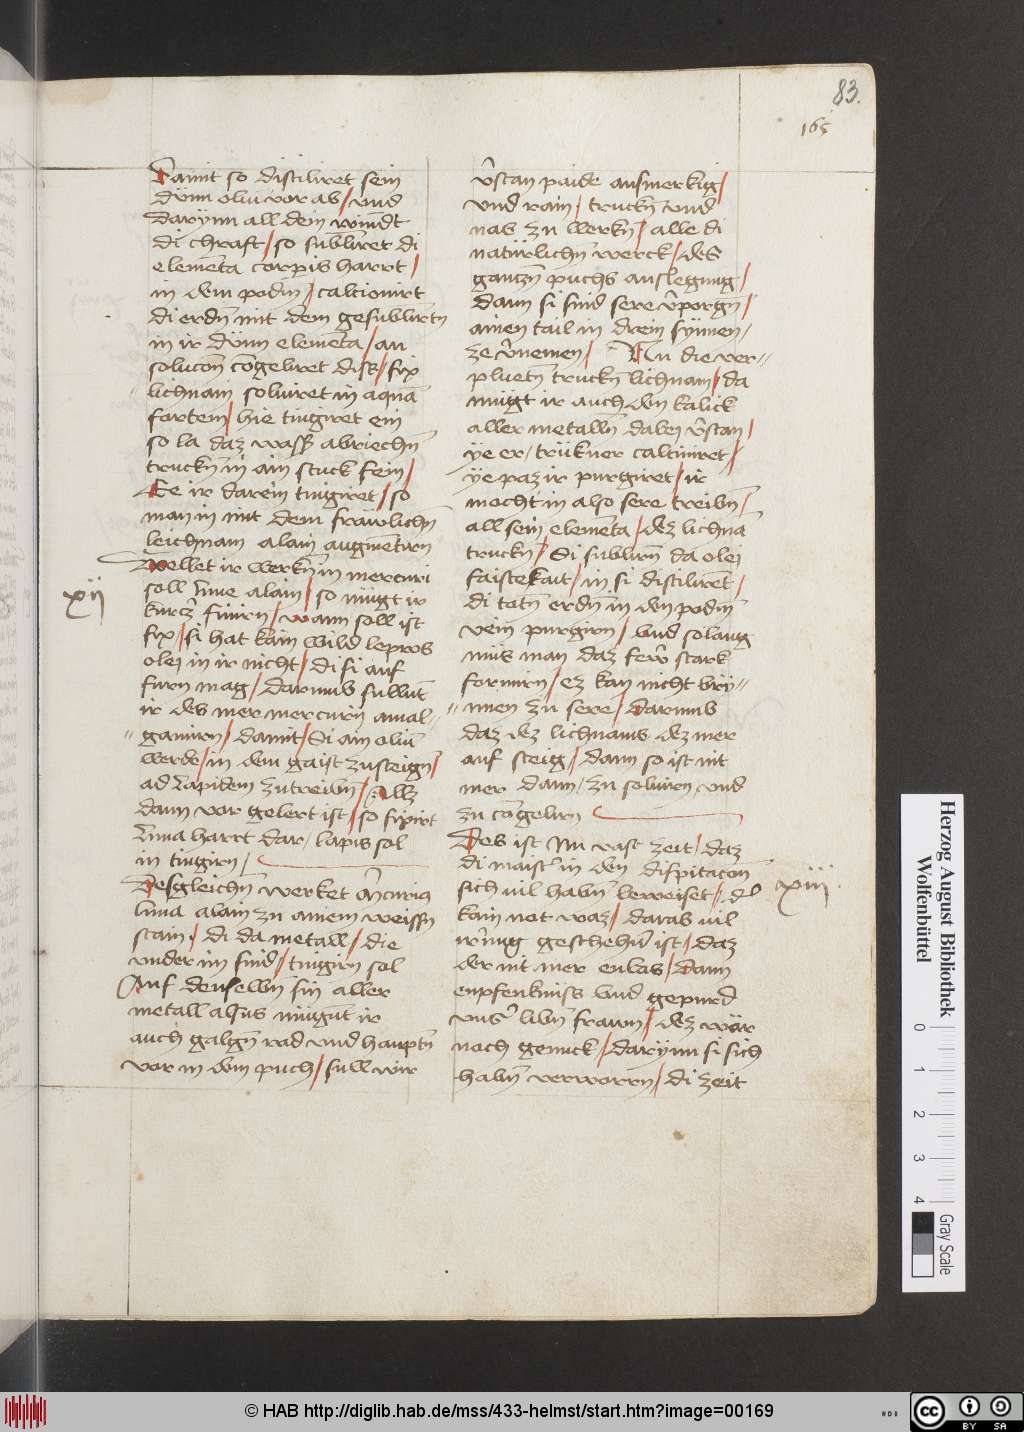 83.
165
Damit so distiliret sein
dünn oliu vor ab / und
darynn all dein windt
di chraft / so subliret di
elemēta corpis harrt /
in dem podm / calcionirt
di erdn̄ mit dem gesublirtn̄
in ir dünn elemēta / an
solucōn cōgeliret diss / fix
lichnam solviret in aquā
fortem / hie tingiret ein
so la daz wasser abriechn̄
truckn̄ in ain stuck fein /
Ee ir darein tingiret / so
man in mit dem fräwlichn̄
leichnam alain augmētirn
Wellet ir werkn̄ in mercuri
xij
soll lune alain / so mügt ir
kurcz finirn / wann soll ist
fix / si hat kain wild lepros
olei in ir nicht / di si auf
furn mag / darumb sullnt
ir des mer mercurii amal-
gamirn / damit / Si ain oliū
werde / in dem gaist zusteign̄ /
ad lapidem zutreibn̄ / Allz
dann vor gelert ist / so fixirt
luna harrt dar / lapis sol
in tingirn /
Desgleichn̄ werket Mercurius
luna alain zu ainem weissn̄
stain / di da metall / die
under im sind / tingirn sol
Auf denselbn̄ sin aller
metall alsus mügnt ir
auch galgn̄ rad und hauptn̄
vor in dem puch / sull wir
v̄stan paide ausmerkūg /
und rain / truckn̄ und
nas zu werkn̄ / alle di
natürlichn̄ werck / des
ganczn̄ puchs auslegung /
dann si sind sere v̄porgn̄ /
ainen tail in drein synnen /
ze v̄nemen / Nu die ver-
pluetn̄ truckn̄ lichnam / da
mügt ir auch den kalick
aller metalln̄ dabei v̄stan /
ye er / trükner calciniret /
ye paz ir purgiret / ir
mocht in also sere treibn̄ /
all sein elemēta / dez lichnā
truckn̄ / Si sublirn̄ da olei
faistekait / in si distiliret /
di totn̄ erdn̄ in den podm̄
vein purgirn / und solang
mus man daz fewr stark
formirn / ez kan nicht bry-
nnen zu sere / darumb
daz dez lichnams dez mer
auf steig / dann so ist nit
mer dann / zu solvirn und
zu cōgelirn
Des ist Nu vast zeit / daz
di maister in den dispitacōn
xiij
sich vil habn̄ beweiset / der
kain not waz / darab vil
irrung geschehn̄ ist / daz
der nit mer enbas / dann
enpfenknuss und gepurd
unser libn̄ frawn / dez war
noch genuck / darynn si sich
habn̄ verworrn / di zeit
Herzog August Bibliothek
Wolfenbüttel
0 1 2 3 4
Gray Scale
© HAB http://diglib.hab.de/mss/433-helmst/start.htm?image=00169
cc BY SA